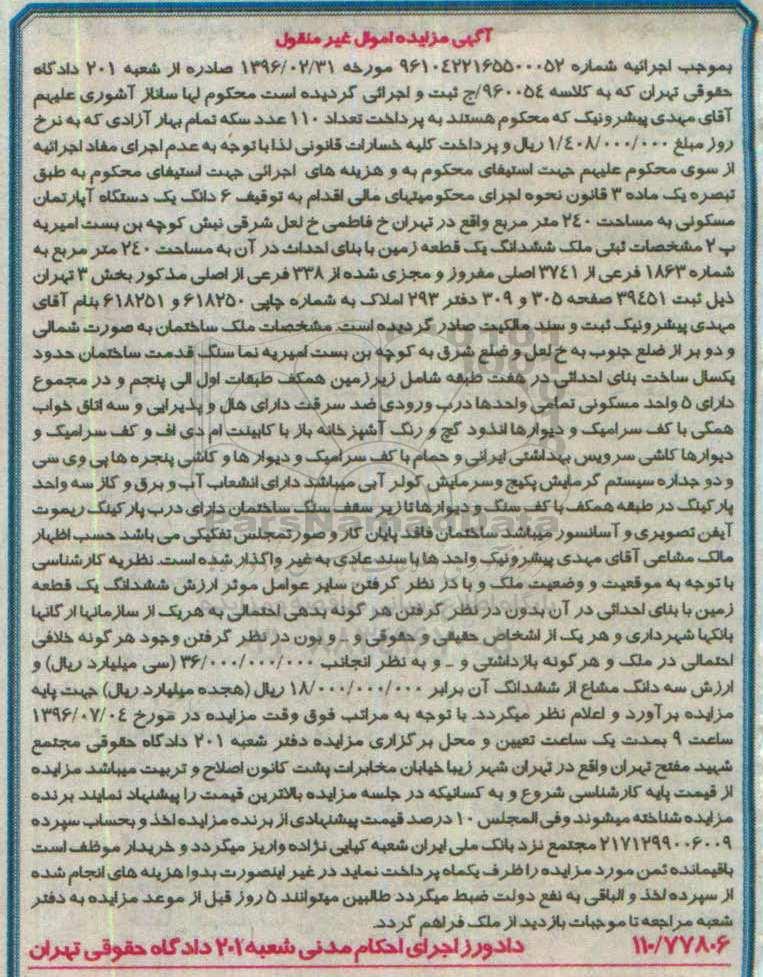 آگهی مزایده اموال غیر منقول
بموجب اجرائیه شماره ۹۶۱۰٤۲۲۱۶۵۵۰۰۰۵۲ مورخه ۱۳۹۶/۰۲/۳۱ صادره از شعبه ۲۰۱ دادگاه
حقوقی تهران که به کلاسه ۹۶۰۰۵٤/ج ثبت و اجرائی گردیده است محکوم لها ساناز آشوری علیهم
آقای مهدی پیشرونیک که محکوم هستند به پرداخت تعداد ۱۱۰ عدد سکه تمام بهار آزادی که به نرخ
روز مبلغ ۱/٤۰۸/۰۰۰/۰۰۰ ریال و پرداخت کلیه خسارات قانونی لذا با توجه به عدم اجرای مفاد اجرائیه
از سوی محکوم علیهم جهت استیفای محکوم به و هزینه های اجرائی جهت استیفای محکوم به طبق
تبصره یک ماده ۳ قانون نحوه اجرای محکومیتهای مالی اقدام به توقیف ۶ دانگ یک دستگاه آپارتمان
مسکونی به مساحت ۲٤۰ متر مربع واقع در تهران خ فاطمی خ لعل شرقی نبش کوچه بن بست امیریه
پ ۲ مشخصات ثبتی ملک ششدانگ یک قطعه زمین با بنای احداث در آن به مساحت ۲٤۰ متر مربع به
شماره ۱۸۶۳ فرعی از ۳۷٤۱ اصلی مفروز و مجزی شده از ۳۳۸ فرعی از اصلی مذکور بخش ۳ تهران
ذیل ثبت ۳۹٤۵۱ صفحه ۳۰۵ و ۳۰۹ دفتر ۲۹۳ املاک به شماره چاپی ۶۱۸۲۵۰ و ۶۱۸۲۵۱ بنام آقای
مهدی پیشرونیک ثبت و سند مالکیت صادر گردیده است. مشخصات ملک ساختمان به صورت شمالی
و دو بر از ضلع جنوب به خ لعل و ضلع شرق به کوچه بن بست امیریه نما سنگ قدمت ساختمان حدود
یکسال ساخت بنای احداثی در هفت طبقه شامل زیرزمین همکف طبقات اول الی پنجم و در مجموع
دارای ۵ واحد مسکونی تمامی واحدها درب ورودی ضد سرقت دارای هال و پذیرایی و سه اتاق خواب
همگی با کف سرامیک و دیوارها اندود گچ و رنگ آشپزخانه باز با کابینت ام دی اف و کف سرامیک و
دیوارها کاشی سرویس بهداشتی ایرانی و حمام با کف سرامیک و دیوار ها و کاشی پنجره ها پی وی سی
و دو جداره سیستم گرمایش پکیج وسرمایش کولر آبی میباشد دارای انشعاب آب و برق و گاز سه واحد
پارکینگ در طبقه همکف با کف سنگ و دیوارها تا زیر سقف سنگ ساختمان دارای درب پارکینگ ریموت
آیفن تصویری و آسانسور میباشد ساختمان فاقد پایان کار و صورتمجلس تفکیکی می باشد حسب اظهار
مالک مشاعی آقای مهدی پیشرونیک واحد ها با سند عادی به غیر واگذار شده است. نظریه کارشناسی
با توجه به موقعیت و وضعیت ملک و با در نظر گرفتن سایر عوامل موثر ارزش ششدانگ یک قطعه
زمین با بنای احداثی در آن بدون در نظر گرفتن هر گونه بدهی احتمالی به هریک از سازمانها ارگانها
بانکها شهرداری و هر یک از اشخاص حقیقی و حقوقی و ـ و بون در نظر گرفتن وجود هر گونه خلافی
احتمالی در ملک و هرگونه بازداشتی و ـ و به نظر انجانب ۳۶/۰۰۰/۰۰۰/۰۰۰ (سی میلیارد ریال) و
ارزش سه دانگ مشاع از ششدانگ آن برابر ۱۸/۰۰۰/۰۰۰/۰۰۰ ریال (هجده میلیارد ریال) جهت پایه
مزایده برآورد و اعلام نظر میگردد. با توجه به مراتب فوق وقت مزایده در مورخ ۱۳۹۶/۰۷/۰٤
ساعت ۹ بمدت یک ساعت تعیین و محل برگزاری مزایده دفتر شعبه ۲۰۱ دادگاه حقوقی مجتمع
شهید مفتح تهران واقع در تهران شهر زیبا خیابان مخابرات پشت کانون اصلاح و تربیت میباشد مزایده
از قیمت پایه کارشناسی شروع و به کسانیکه در جلسه مزایده بالاترین قیمت را پیشنهاد نمایند برنده
مزایده شناخته میشوند وفی المجلس ۱۰ درصد قیمت پیشنهادی از برنده مزایده اخذ و بحساب سپرده
۲۱۷۱۲۹۹۰۰۶۰۰۹ مجتمع نزد بانک ملی ایران شعبه کیایی نژاده واریز میگردد و خریدار موظف است
باقیمانده ثمن مورد مزایده را ظرف یکماه پرداخت نماید در غیر اینصورت بدوا هزینه های انجام شده
از سپرده اخذ و الباقی به نفع دولت ضبط میگردد طالبین میتوانند ۵ روز قبل از موعد مزایده به دفتر
شعبه مراجعه تا موجبات بازدید از ملک فراهم گردد.
۱۱۰/۷۷۸۰۶ دادورز اجرای احکام مدنی شعبه ۲۰۱ دادگاه حقوقی تهران
ParsNamadData